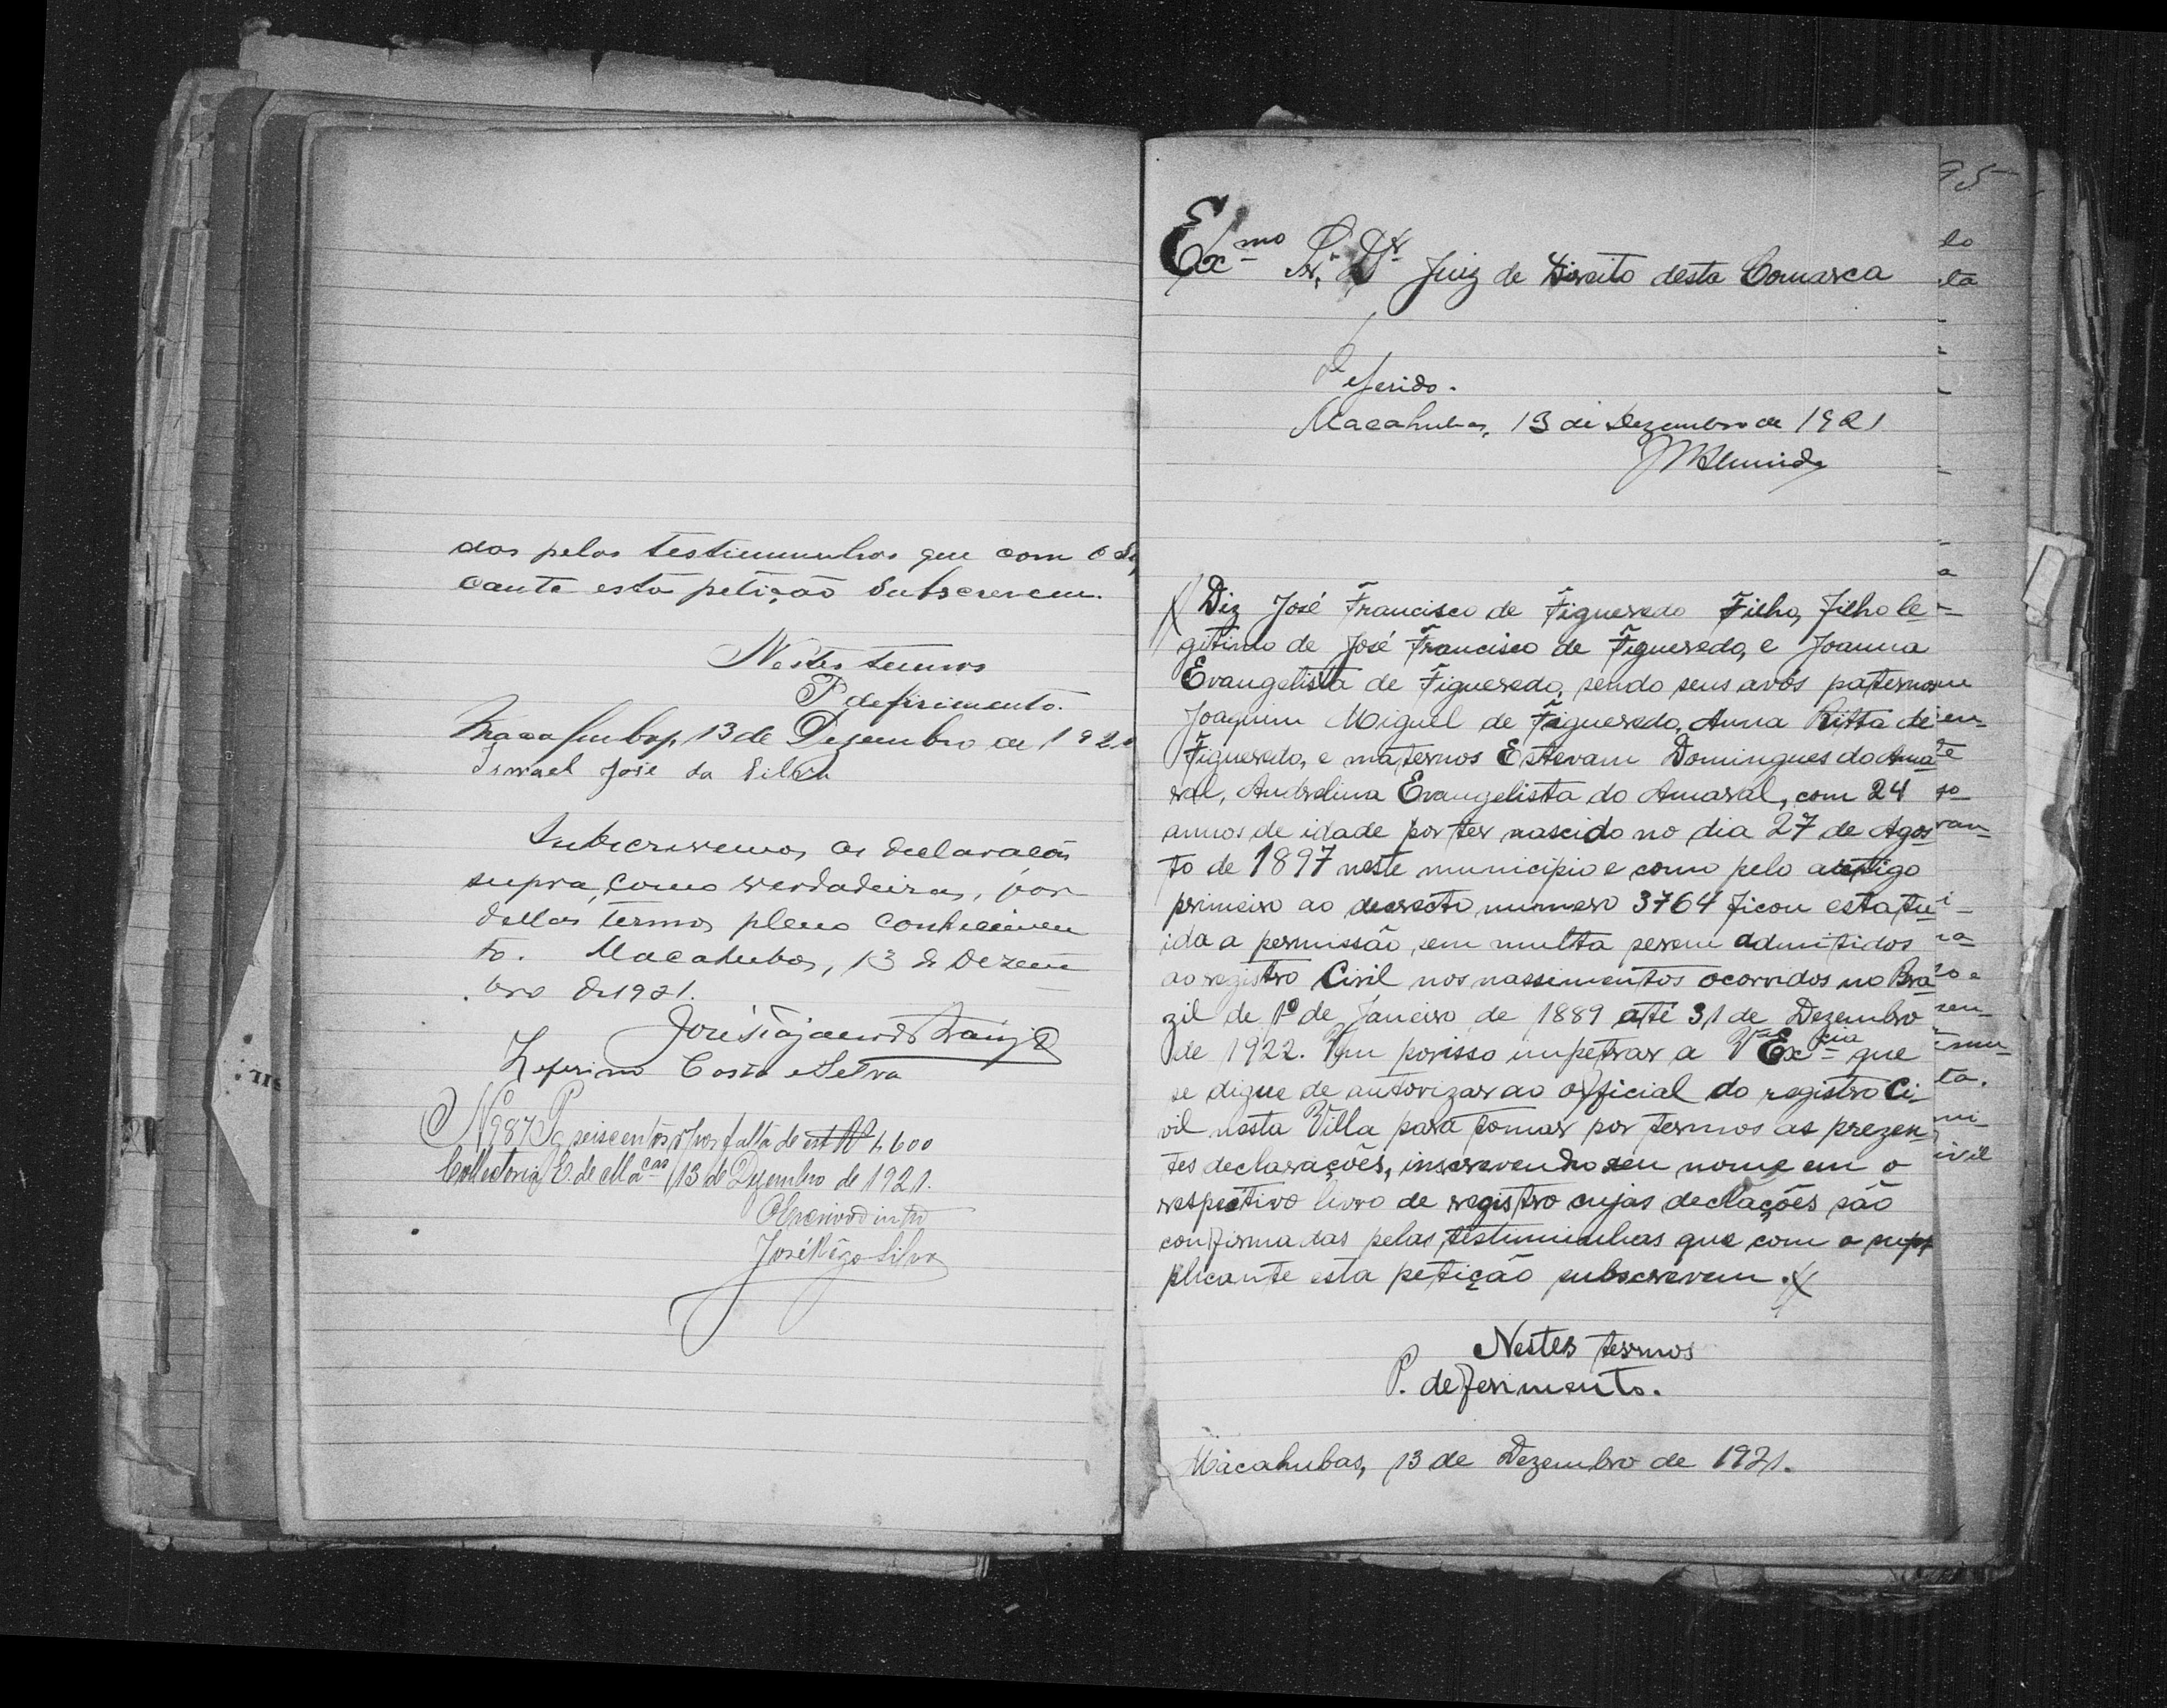 das pelas testimunhas que com o
cante esta petição subscrevem.
Nestes termos
P. deferimento.
Macahubas, 13 de Dezembro de 192
Ismael José da Silva
Subscrevemos as declaracões
supra, como verdadeiras, por
dellas termos pleno conhecimen
to. Macahubas, 13 de Dezem
bro de 1921.
Zeferino Costa e Silva
Nº 987 Pg seiscentos rs por falta de est. Rs 600
Collectoria E. de Macas 13 de Dezembro de 1921.
José Silva
95
Exmo Sr. Dr. Juiz de Direito desta Comarca
Deferido.
Macahubas, 13 de Dezembro de 1921
Diz José Francisco de Figueredo Filho, filho le-
gitimo de José Francisco de Figueredo, e Joanna
Evangelista de Figueredo, sendo seus avós paternos
Joaquim Miguel de Figueredo, Anna Ritta de
Figueredo, e maternos Estevam Domingues do Ama
ral, Andrelina Evangelista do Amaral, com 24
annos de idade por ter nascido no dia 27 de Agos
to de 1897 neste municipio e como pelo arctigo
primeiro ao decrecto numero 3764 ficou estatu-
ida a permissão sem multa serem admitidos
ao registro Civil nos nassimentos ocorridos no Bra
zil de 1º de Janeiro de 1889 até 31 de Dezembro
de 1922. Vem porisso impetrar a V Excia que
se digne de autorizar ao official do registro Ci-
vil nesta Villa para tomar por termos as prezen
tes declarações, inscrevendo seu nome em o
respectivo livro de registro cujas declações são
confirmadas pelas testiminhas que com o sup
plicante esta petição subscrevem.
Nestes termos
P. deferimento.
Macahubas, 13 de Dezembro de 1921.